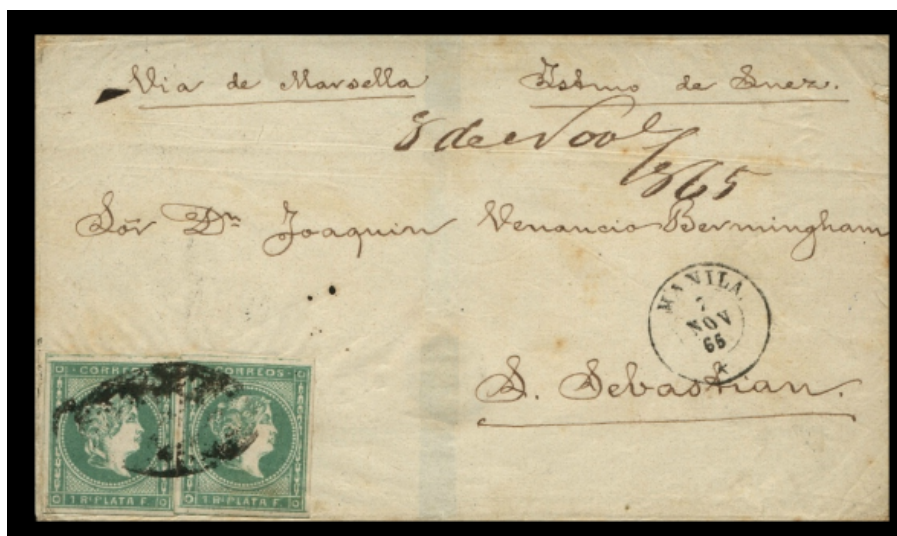 Via de Marsella Istmo de Suez.
8 de Novl
/865
Sōr Dn Joaquin Venancio Bermingham
MANILA.
7
NOV
65
S. Sebastian.
CORREOS CORREOS
1 Rl PLATA F. 1 Rl PLATA F.